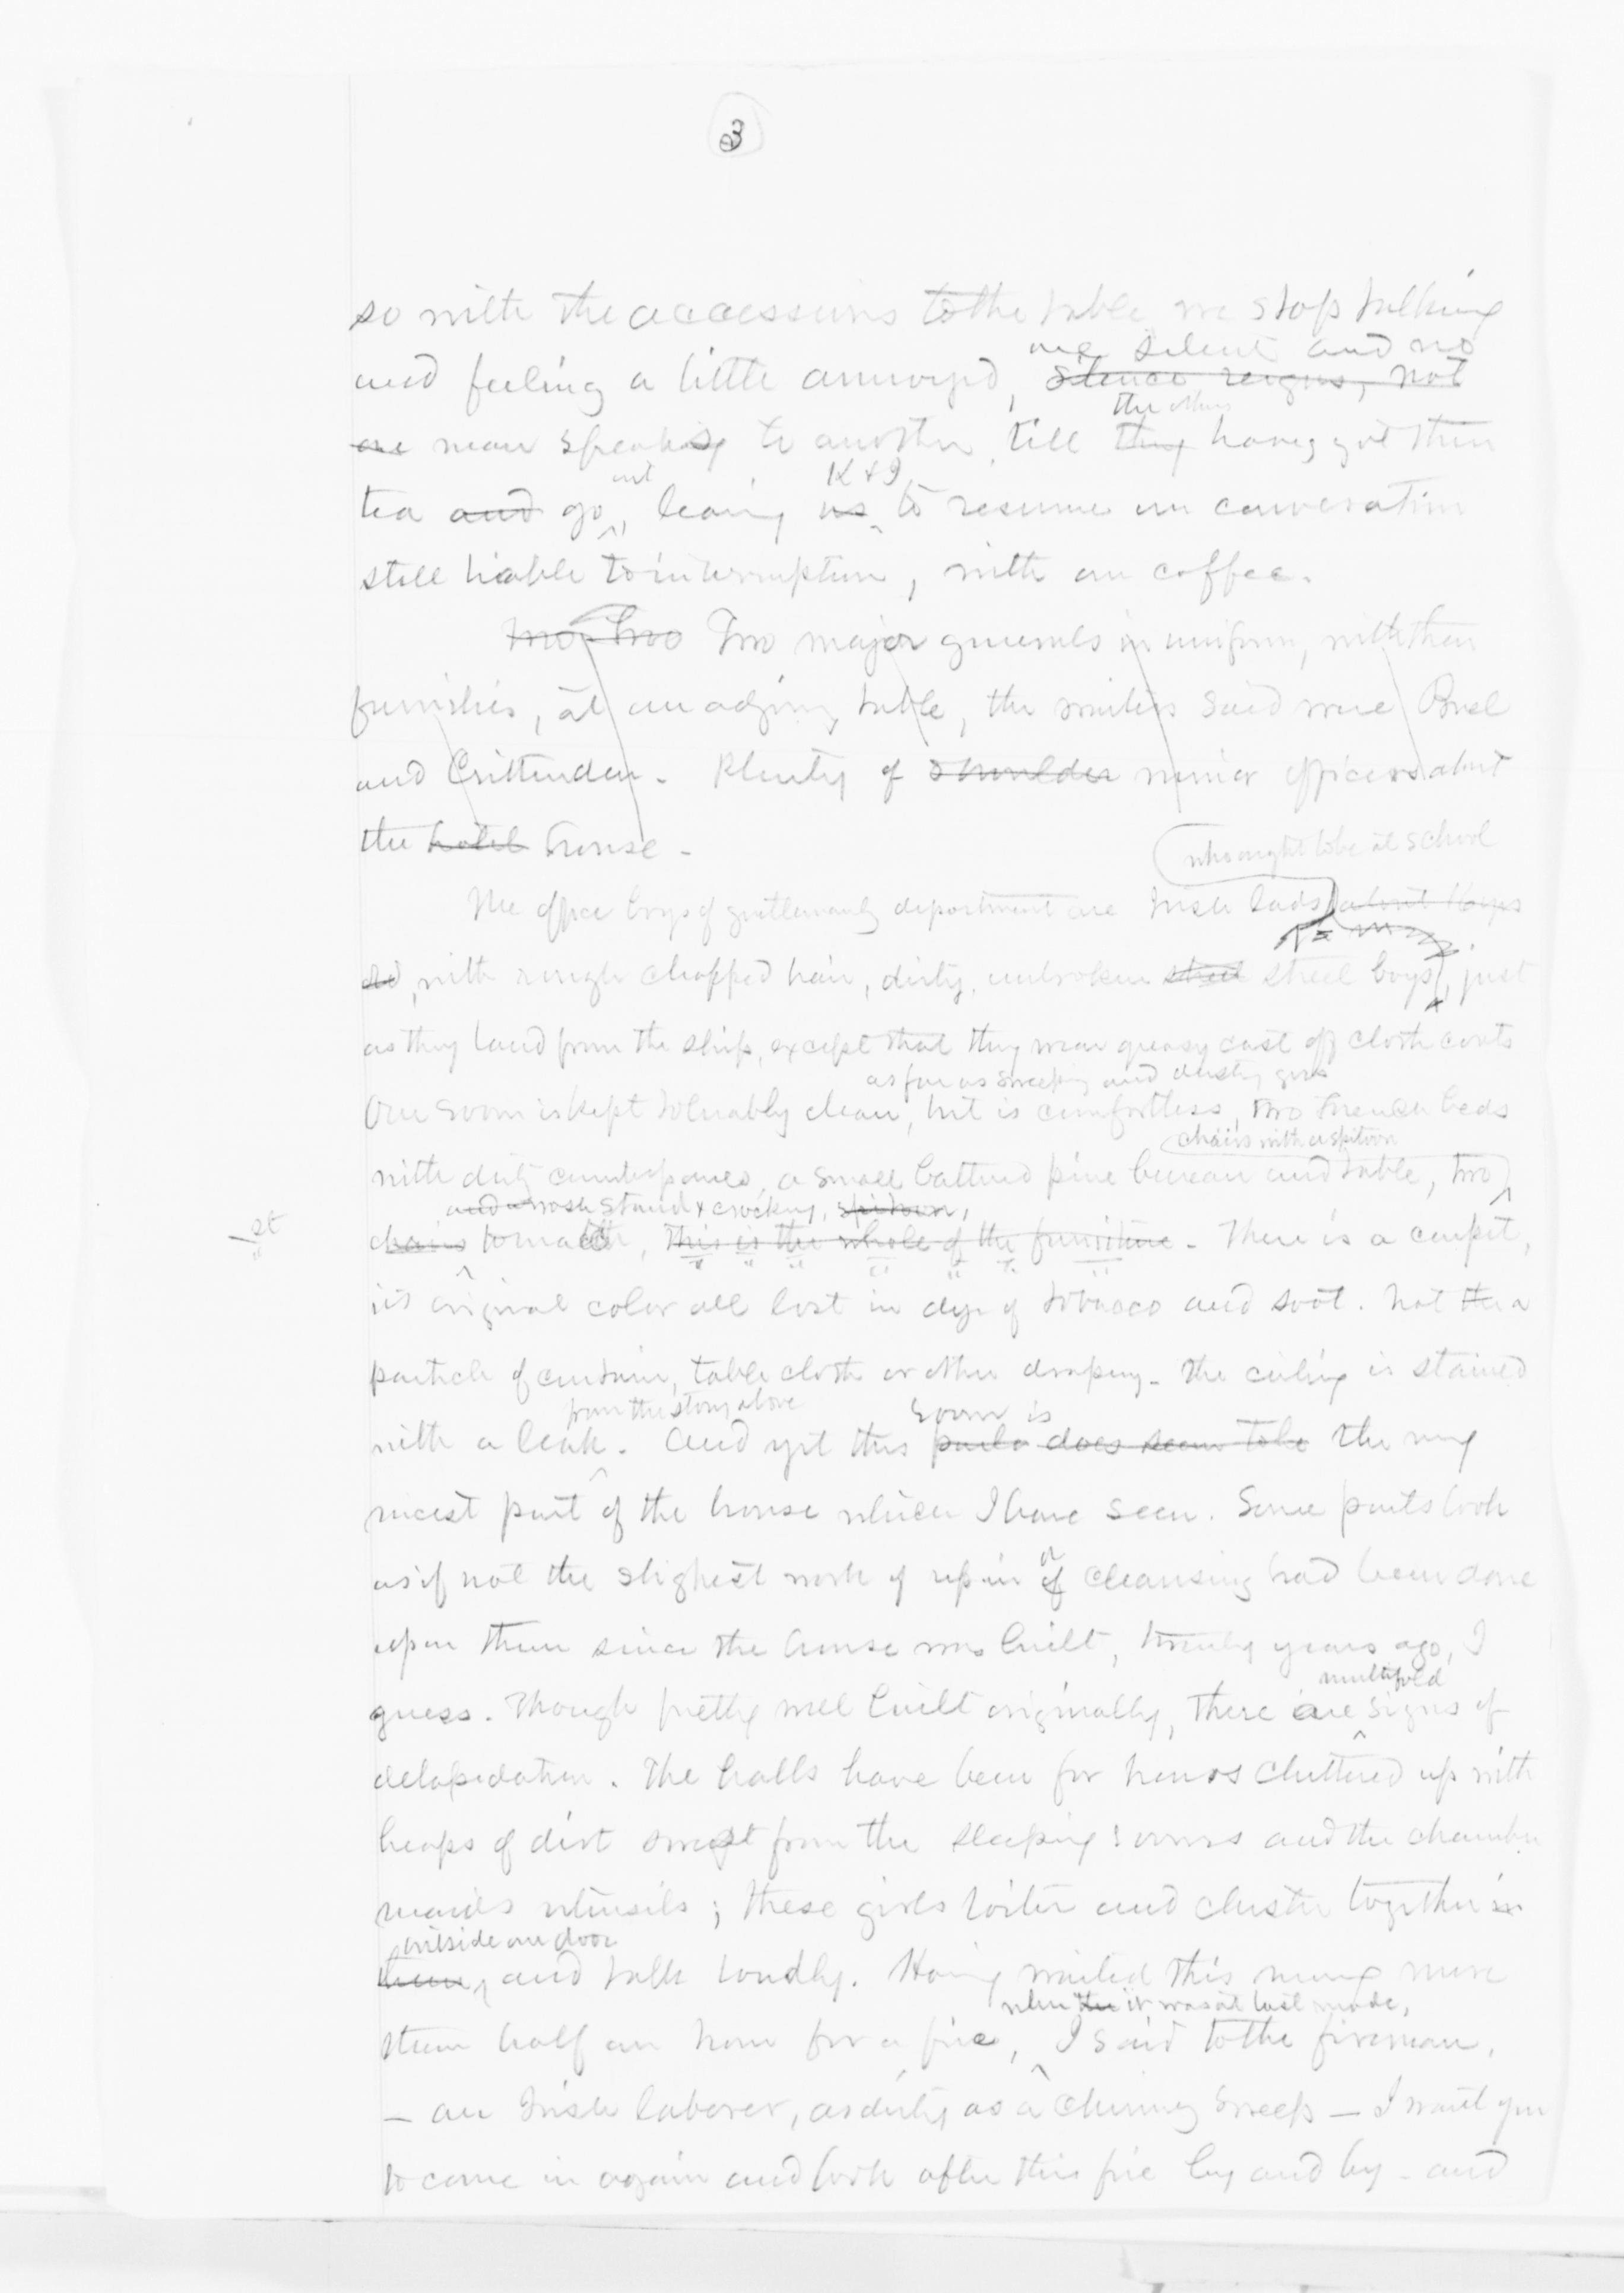 3
so with the accessions to the table we stop talking
are silent and no
and feeling a little annoyed, silence reigns, not
the others
one man speaking to another, till they having got their
out K & I
tea and go, leaving us to resume our conversation
still liable to interruption, with our coffee.
Two Two Two major generals in uniform, with their
families, at an adjoing table, the waiters said were Buel
and Crittenden. Plenty of shoulder minor officers about
the hotel house.
who ought to be at school
The office boys of gentlemanly deportment are Irish lads about 16 yrs
old, with rough chopped hair, dirty, unbroken street street boys, just
as they land from the ship, except that they wear greasy cast off cloth coats
as far as sweeping and dusting goes
Our room is kept tolerably clean, but is comfortless, two French beds
chairs with a spitoon
with dirty counterpanes, a small battered pine bureau and table, two
and a wash stand & crockery, spitoon,
chairs to match, This is the whole of the furniture. There is a carpet,
st
its original color all lost in dye of tobacco and soot. Not the a
particle of curtain, table cloth or other drapery. The ceiling is stained
from the story above room is
with a leak. And yet this parlor does seem to be the very
nicest part of the house which I have seen. Some parts look
or
as if not the slighest work of repair of cleansing had been done
upon them since the house was built, twenty years ago, I
multifold
guess. Though pretty well built originally, there are signs of
delapedation. The halls have been for hours cluttered up with
heaps of dirt swept from the sleeping rooms and the chamber
maids utensils; these girls loiter and cluster together in
outside our door
them, and talk loudly. Having waited this morning more
when the it was at last made,
than half an hour for a fire, I said to the fireman,
— an Irish laborer, as dirty as a chimney sweep — I want you
to come in again and look after this fire by and by - and